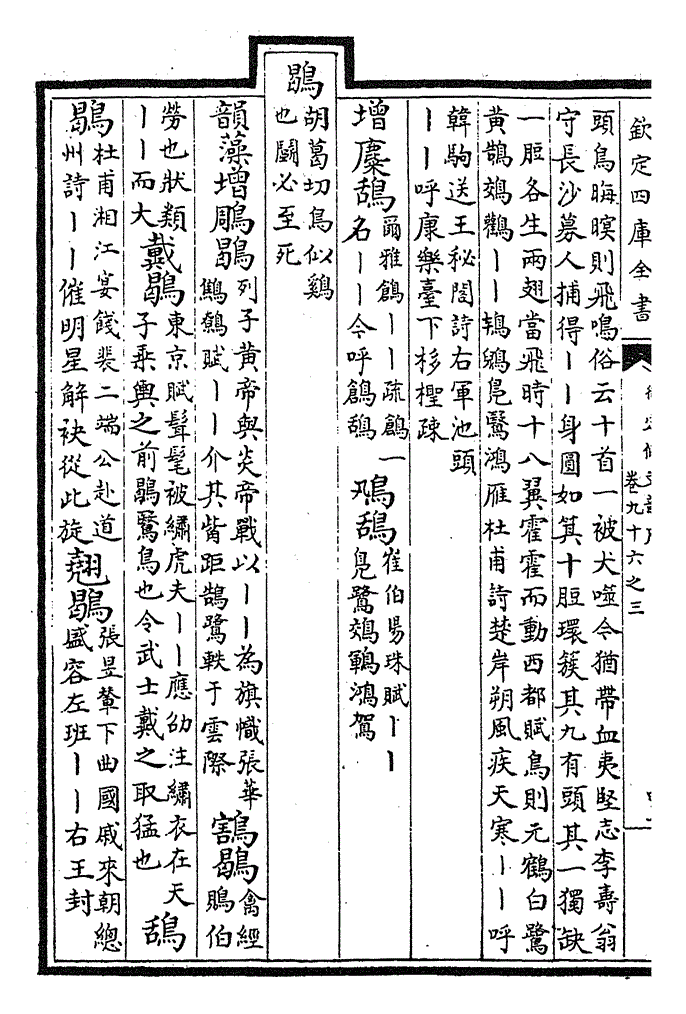 欽定四庫全書
卷九十六之三
頭鳥晦暝則飛鳴俗云十首一被犬噬今猶帶血夷堅志李壽翁
守長沙募人捕得丨丨身圓如箕十脰環簇其九有頭其一獨缺
一脰各生兩翅當飛時十八翼霍霍而動西都賦鳥則元鶴白鷺
黃鵠鵁鸛丨丨鴇鶂鳧鷖鴻雁杜甫詩楚岸朔風疾天寒丨丨呼
韓駒送王秘閣詩右軍池頭
丨丨呼康樂臺下杉檉疎
增麋鴰爾雅鶬丨丨疏鶬一名丨丨今呼鶬鴰鳵鴰崔伯易珠賦丨丨鳧鷺鵁鶤鴻駕
鶡胡葛切鳥似鷄也鬭必至死
韻藻增鵰鶡列子黃帝與炎帝戰以丨丨為旗幟張華鷦鷯賦丨丨介其觜距鵠鷺軼于雲際鶷鶡禽經鶪伯
勞也狀類丨丨而大戴鶡東京賦髶髦被繡虎夫丨丨應劭注繡衣在天子乘輿之前鶡鷖鳥也令武士戴之取猛也鴰
鶡杜甫湘江宴餞裴二端公赴道州詩丨丨催明星解袂從此旋翹鶡張昱輦下曲國戚來朝總盛容左班丨丨右王封